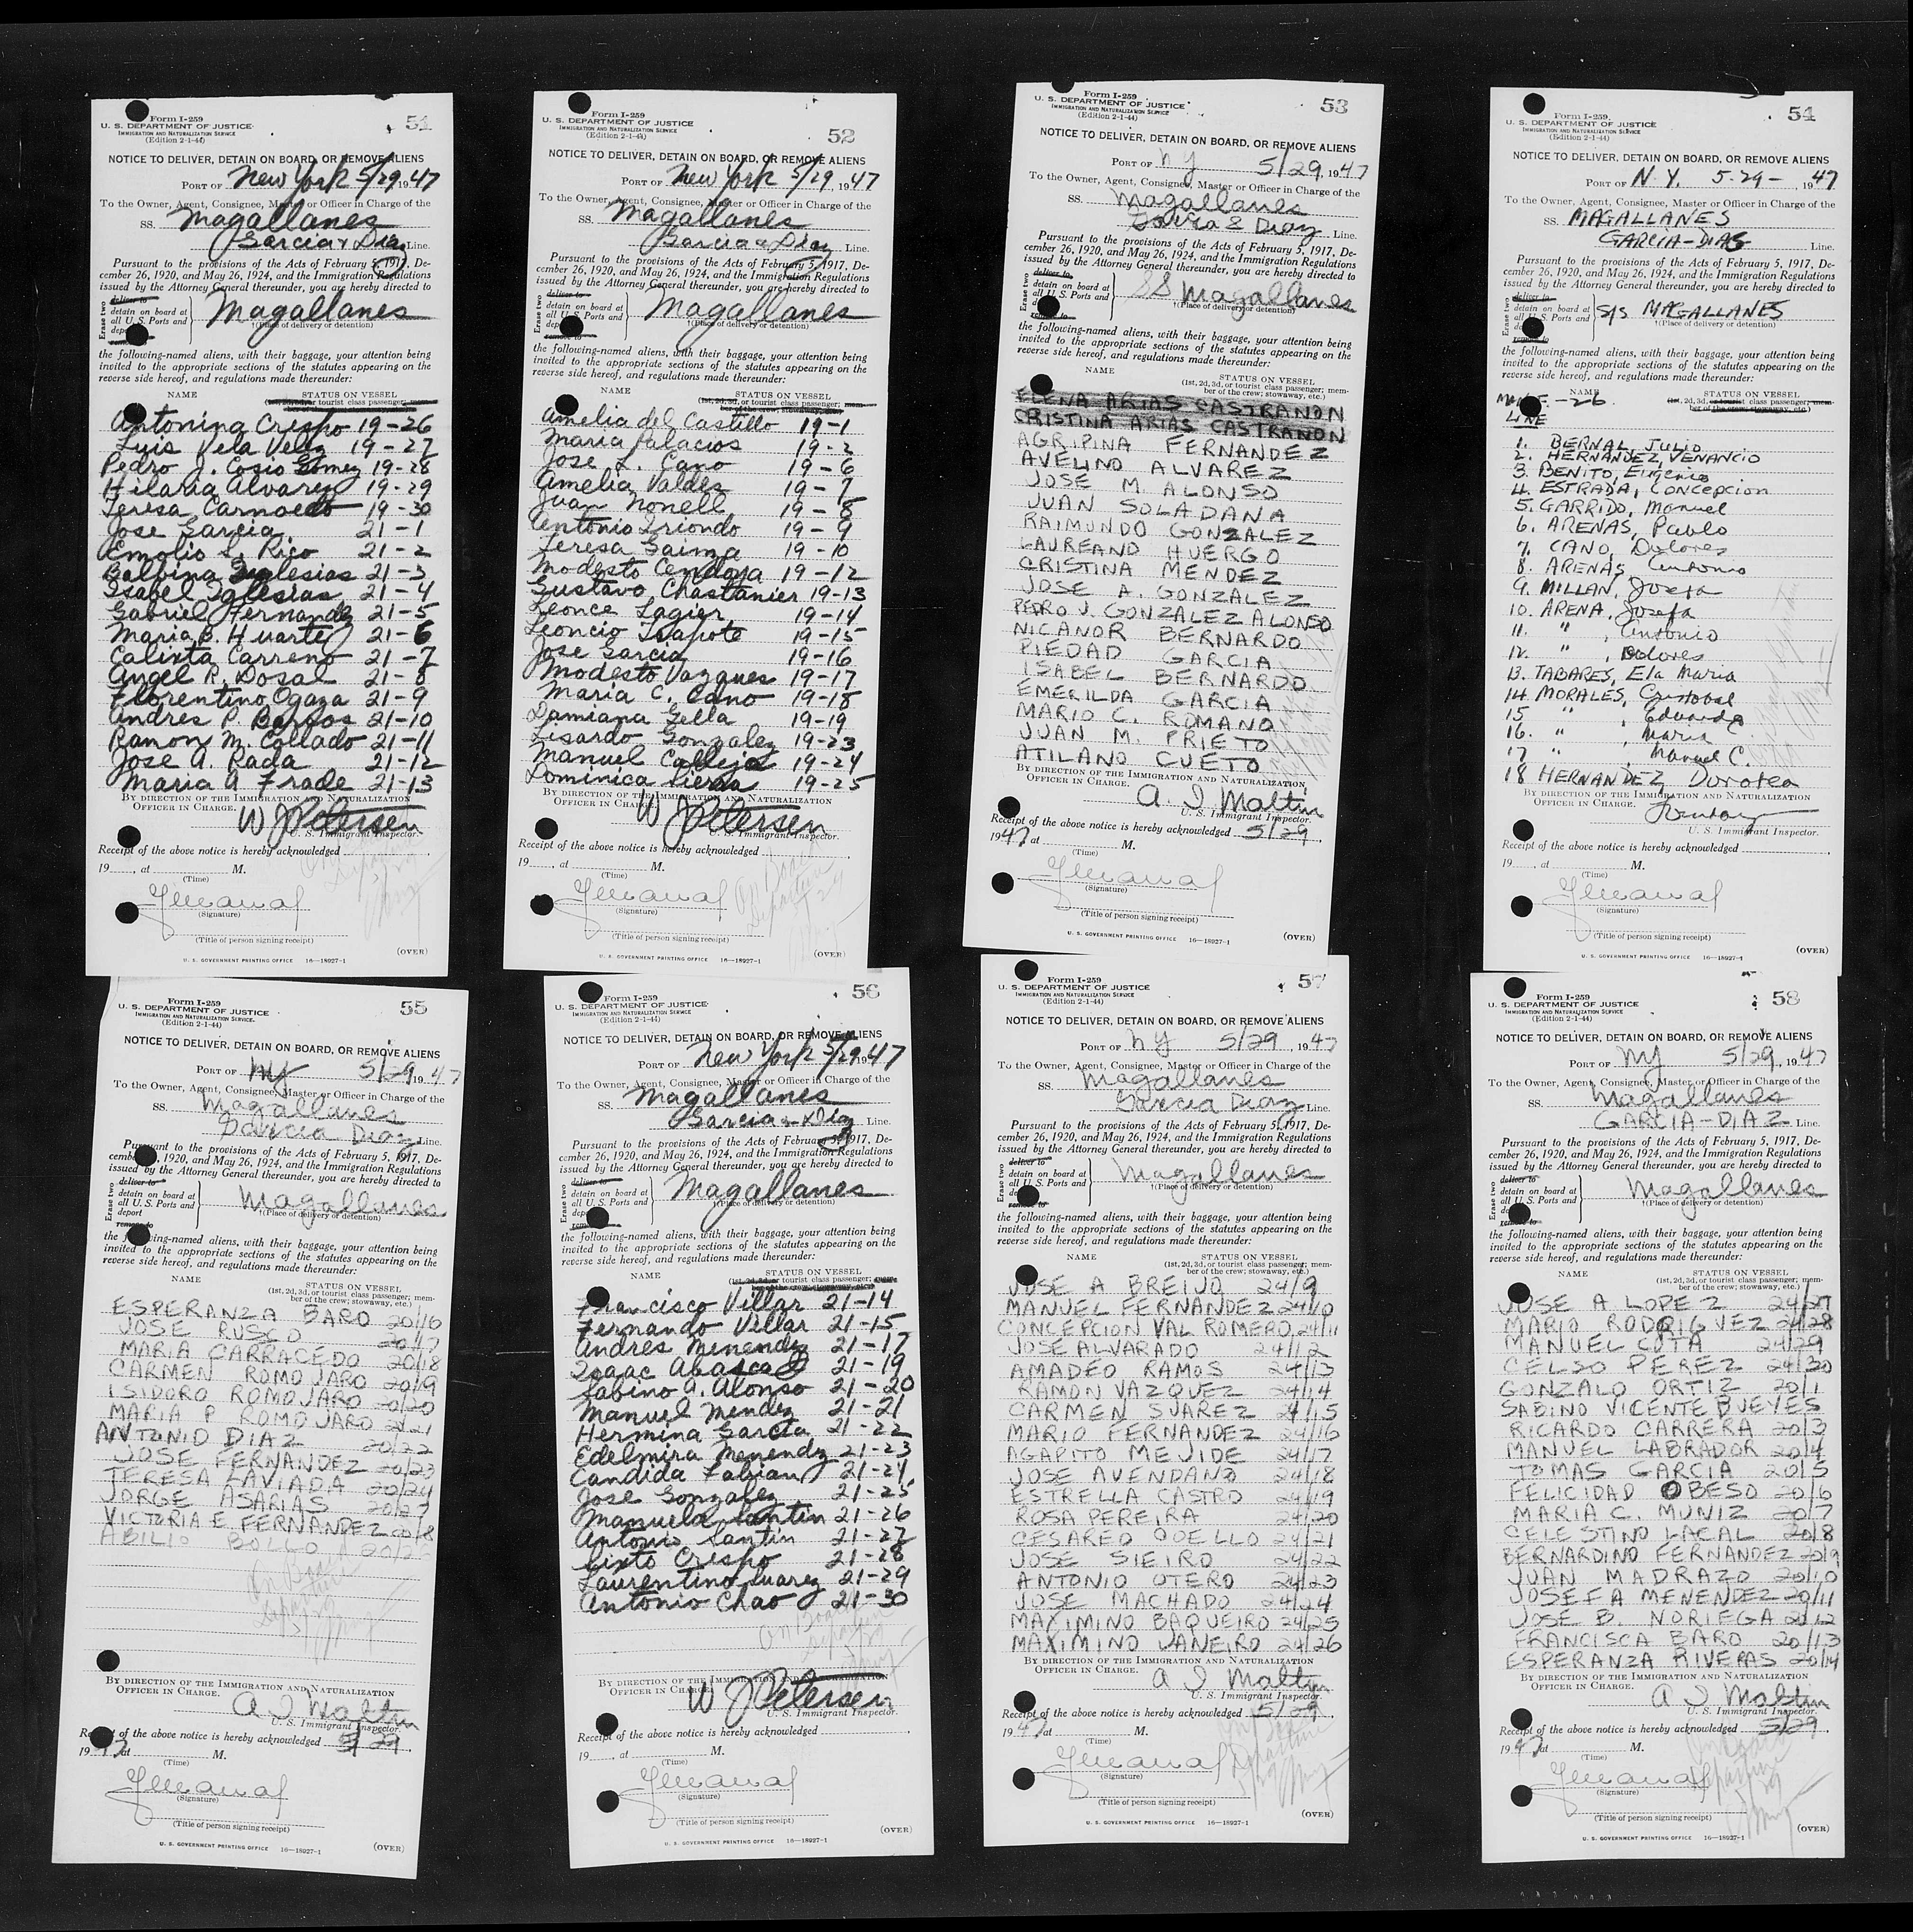 Form I-259
U. S. DEPARTMENT OF JUSTICE
IMMIGRATION AND NATURALIZATION SERVICE
(Edition 2-1-44)
51
NOTICE TO DELIVER, DETAIN ON BOARD, OR REMOVE ALIENS
PORT OF New York 5/29 1947
To the Owner, Agent, Consignee, Master or Officer in Charge of the
SS. Magallanes
Garcia & Diaz Line.
Pursuant to the provisions of the Acts of February 5, 1917, De-
cember 26, 1920, and May 26, 1924, and the Immigration Regulations
issued by the Attorney General thereunder, you are hereby directed to
Erase two
deliver to
detain on board at
all U. S. Ports and
Magallanes
(Place of delivery or detention)
the following-named aliens, with their baggage, your attention being
invited to the appropriate sections of the statutes appearing on the
reverse side hereof, and regulations made thereunder:
NAME STATUS ON VESSEL
Antonina Crespo 19-26
Luis Vela Velez 19-27
Pedro J. Cosio Gomez 19-28
Hilaria Alvarez 19-29
Teresa Carnoedo 19-30
Jose Garcia 21-1
Emolio S. Rico 21-2
Balbina Iglesias 21-3
Isabel Iglesias 21-4
Gabriel Fernandez 21-5
Maria B. Huarte 21-6
Calixta Carreno 21-7
Angel R. Dosal 21-8
Florentino Ogaza 21-9
Andres P. Bargos 21-10
Ramon M. Collado 21-11
Jose A. Rada 21-12
Maria A Frade 21-13
BY DIRECTION OF THE IMMIGRATION AND NATURALIZATION
OFFICER IN CHARGE.
W J Petersen
U. S. Immigrant Inspector.
Receipt of the above notice is hereby acknowledged
19 , at M.
(Time)
(Signature)
(Title of person signing receipt)
(OVER)
U. S. GOVERNMENT PRINTING OFFICE 16—18927-1
Form I-259
U. S. DEPARTMENT OF JUSTICE
IMMIGRATION AND NATURALIZATION SERVICE
(Edition 2-1-44)
52
NOTICE TO DELIVER, DETAIN ON BOARD, OR REMOVE ALIENS
PORT OF New York 5/29, 1947
To the Owner, Agent, Consignee, Master or Officer in Charge of the
SS. Magallanes
Garcia & Diaz Line.
Pursuant to the provisions of the Acts of February 5, 1917, De-
cember 26, 1920, and May 26, 1924, and the Immigration Regulations
issued by the Attorney General thereunder, you are hereby directed to
Erase two
deliver to
detain on board at
all U. S. Ports and
Magallanes
(Place of delivery or detention)
the following-named aliens, with their baggage, your attention being
invited to the appropriate sections of the statutes appearing on the
reverse side hereof, and regulations made thereunder:
NAME STATUS ON VESSEL
(1st, 2d, 3d, or tourist class passenger; mem-
ber of the crew; stowaway, etc.)
Amelia del Castillo 19-1
Maria Palacios 19-2
Jose L. Cano 19-6
Amelia Valdes 19-7
Juan Nonell 19-8
Antonio Iriondo 19-9
Teresa Gaima 19-10
Modesto Cendoya 19-12
Gustavo Chastanier 19-13
Leonce Lagier 19-14
Leoncio Trapote 19-15
Jose Garcia 19-16
Modesto Vazques 19-17
Maria C. Cano 19-18
Damiana Gella 19-19
Lisardo Gonzalez 19-23
Manuel Calleja 19-24
Dominica Sierra 19-25
BY DIRECTION OF THE IMMIGRATION AND NATURALIZATION
OFFICER IN CHARGE.
W J Petersen
U. S. Immigrant Inspector.
Receipt of the above notice is hereby acknowledged
19 , at M.
(Time)
(Signature)
(Title of person signing receipt)
(OVER)
U. S. GOVERNMENT PRINTING OFFICE 16—18927-1
Form I-259
U. S. DEPARTMENT OF JUSTICE
IMMIGRATION AND NATURALIZATION SERVICE
(Edition 2-1-44)
53
NOTICE TO DELIVER, DETAIN ON BOARD, OR REMOVE ALIENS
PORT OF NY 5/29, 1947
To the Owner, Agent, Consignee, Master or Officer in Charge of the
SS. Magallanes
Garcia & Diaz Line.
Pursuant to the provisions of the Acts of February 5, 1917, De-
cember 26, 1920, and May 26, 1924, and the Immigration Regulations
issued by the Attorney General thereunder, you are hereby directed to
Erase two
deliver to
detain on board at
all U. S. Ports and
SS Magallanes
(Place of delivery or detention)
the following-named aliens, with their baggage, your attention being
invited to the appropriate sections of the statutes appearing on the
reverse side hereof, and regulations made thereunder:
NAME STATUS ON VESSEL
(1st, 2d, 3d, or tourist class passenger; mem-
ber of the crew; stowaway, etc.)
ELENA ARIAS CASTRANON
CRISTINA ARIAS CASTRANON
AGRIPINA FERNANDEZ
AVELINO ALVAREZ
JOSE M. ALONSO
JUAN SOLADANA
RAIMUNDO GONZALEZ
LAUREANO HUERGO
CRISTINA MENDEZ
JOSE A. GONZALEZ
PEDRO J. GONZALEZ ALONSO
NICANOR BERNARDO
PIEDAD GARCIA
ISABEL BERNARDO
EMERILDA GARCIA
MARIO C. ROMANO
JUAN M. PRIETO
ATILANO CUETO
BY DIRECTION OF THE IMMIGRATION AND NATURALIZATION
OFFICER IN CHARGE.
A. I Maltin
U. S. Immigrant Inspector.
Receipt of the above notice is hereby acknowledged 5/29
1947 at M.
(Time)
(Signature)
(Title of person signing receipt)
U. S. GOVERNMENT PRINTING OFFICE 16—18927-1 (OVER)
Form I-259
U. S. DEPARTMENT OF JUSTICE
IMMIGRATION AND NATURALIZATION SERVICE
(Edition 2-1-44)
54
NOTICE TO DELIVER, DETAIN ON BOARD, OR REMOVE ALIENS
PORT OF N.Y. 5-29-, 1947
To the Owner, Agent, Consignee, Master or Officer in Charge of the
SS. MAGALLANES
GARCIA-DIAS Line.
Pursuant to the provisions of the Acts of February 5, 1917, De-
cember 26, 1920, and May 26, 1924, and the Immigration Regulations
issued by the Attorney General thereunder, you are hereby directed to
Erase two
deliver to
detain on board at
all U. S. Ports and
remove to
S/S MAGALLANES
(Place of delivery or detention)
the following-named aliens, with their baggage, your attention being
invited to the appropriate sections of the statutes appearing on the
reverse side hereof, and regulations made thereunder:
NAME STATUS ON VESSEL
(1st, 2d, 3d, or tourist class passenger; mem-
ber of the crew; stowaway, etc.)
-26
LINE
1. BERNAL, JULIO
2. HERNANDEZ, VENANCIO
3. BENITO, Eugenio
4. ESTRADA, Concepcion
5. GARRIDO, Manuel
6. ARENAS, Pablo
7. CANO, Dolores
8. ARENAS, Antonio
9. MILLAN, Josefa
10. ARENA, Josefa
11. " , Antonio
12. " , Dolores
13. TABARES, Ela Maria
14. MORALES, Cristobal
15 " , Eduarda
16. " , Maria
17 " , Manuel C.
18 HERNANDEZ, Dorotea
BY DIRECTION OF THE IMMIGRATION AND NATURALIZATION
OFFICER IN CHARGE.
U. S. Immigrant Inspector.
Receipt of the above notice is hereby acknowledged
19 , at M.
(Time)
(Signature)
(Title of person signing receipt)
(OVER)
U. S. GOVERNMENT PRINTING OFFICE 16—18927-1
Form I-259
U. S. DEPARTMENT OF JUSTICE
IMMIGRATION AND NATURALIZATION SERVICE
(Edition 2-1-44)
55
NOTICE TO DELIVER, DETAIN ON BOARD, OR REMOVE ALIENS
PORT OF NY 5/29 1947
To the Owner, Agent, Consignee, Master or Officer in Charge of the
SS. Magallanes
Garcia Diaz Line.
Pursuant to the provisions of the Acts of February 5, 1917, De-
cember 26, 1920, and May 26, 1924, and the Immigration Regulations
issued by the Attorney General thereunder, you are hereby directed to
Erase two
deliver to
detain on board at
all U. S. Ports and
deport
remove to
Magallanes
(Place of delivery or detention)
the following-named aliens, with their baggage, your attention being
invited to the appropriate sections of the statutes appearing on the
reverse side hereof, and regulations made thereunder:
NAME STATUS ON VESSEL
(1st, 2d, 3d, or tourist class passenger; mem-
ber of the crew; stowaway, etc.)
ESPERANZA BARO 20/16
JOSE RUSCO 20/17
MARIA CARRACEDO 20/18
CARMEN ROMOJARO 20/19
ISIDORO ROMOJARO 20/20
MARIA P ROMOJARO 20/21
ANTONIO DIAZ 20/22
JOSE FERNANDEZ 20/23
TERESA LAVIADA 20/24
JORGE ASARIAS 20/27
VICTORIA E FERNANDEZ 20/8
ABILIO BOLLO
On Board
Departure
BY DIRECTION OF THE IMMIGRATION AND NATURALIZATION
OFFICER IN CHARGE.
A I Maltin
U. S. Immigrant Inspector.
Receipt of the above notice is hereby acknowledged 5/29
1947 at M.
(Time)
(Signature)
(Title of person signing receipt)
U. S. GOVERNMENT PRINTING OFFICE 16—18927-1 (OVER)
Form I-259
U. S. DEPARTMENT OF JUSTICE
IMMIGRATION AND NATURALIZATION SERVICE
(Edition 2-1-44)
56
NOTICE TO DELIVER, DETAIN ON BOARD, OR REMOVE ALIENS
PORT OF New York 5/29 1947
To the Owner, Agent, Consignee, Master or Officer in Charge of the
SS. Magallanes
Garcia & Diaz Line.
Pursuant to the provisions of the Acts of February 5, 1917, De-
cember 26, 1920, and May 26, 1924, and the Immigration Regulations
issued by the Attorney General thereunder, you are hereby directed to
Erase two
deliver to
detain on board at
all U. S. Ports and
Magallanes
(Place of delivery or detention)
the following-named aliens, with their baggage, your attention being
invited to the appropriate sections of the statutes appearing on the
reverse side hereof, and regulations made thereunder:
NAME STATUS ON VESSEL
(1st, 2d, 3d, or tourist class passenger; mem-
ber of the crew; stowaway, etc.)
Francisco Villar 21-14
Fernando Villar 21-15
Andres Menendez 21-17
Isaac Abascal 21-19
Sabino A. Alonso 21-20
Manuel Mendez 21-21
Hermina Garcia 21-22
Edelmira Menendz 21-23
Candida Fabian 21-24
Jose Gonzalez 21-25
Manuela Santin 21-26
Antonio Santin 21-27
Sixto Crespo 21-28
Laurentino Suarez 21-29
Antonio Chao 21-30
On Board
BY DIRECTION OF THE IMMIGRATION AND NATURALIZATION
OFFICER IN CHARGE.
W J Petersen
U. S. Immigrant Inspector.
Receipt of the above notice is hereby acknowledged
19 , at M.
(Time)
(Signature)
(Title of person signing receipt)
(OVER)
U. S. GOVERNMENT PRINTING OFFICE 16—18927-1
Form I-259
U. S. DEPARTMENT OF JUSTICE
IMMIGRATION AND NATURALIZATION SERVICE
(Edition 2-1-44)
57
NOTICE TO DELIVER, DETAIN ON BOARD, OR REMOVE ALIENS
PORT OF NY 5/29, 1947
To the Owner, Agent, Consignee, Master or Officer in Charge of the
SS. Magallanes
Garcia Diaz Line.
Pursuant to the provisions of the Acts of February 5, 1917, De-
cember 26, 1920, and May 26, 1924, and the Immigration Regulations
issued by the Attorney General thereunder, you are hereby directed to
Erase two
deliver to
detain on board at
all U. S. Ports and
remove to
Magallanes
(Place of delivery or detention)
the following-named aliens, with their baggage, your attention being
invited to the appropriate sections of the statutes appearing on the
reverse side hereof, and regulations made thereunder:
NAME STATUS ON VESSEL
(1st, 2d, 3d, or tourist class passenger; mem-
ber of the crew; stowaway, etc.)
JOSE A BREIJO 24/9
MANUEL FERNANDEZ 24/10
CONCEPCION VAL ROMERO 24/11
JOSE ALVARADO 24/12
AMADEO RAMOS 24/13
RAMON VAZQUEZ 24/14
CARMEN SUAREZ 24/15
MARIO FERNANDEZ 24/16
AGAPITO MEJIDE 24/17
JOSE AVENDANO 24/18
ESTRELLA CASTRO 24/19
ROSA PEREIRA 24/20
CESAREO COELLO 24/21
JOSE SIEIRO 24/22
ANTONIO OTERO 24/23
JOSE MACHADO 24/24
MAXIMINO BAQUEIRO 24/25
MAXIMINO JANEIRO 24/26
BY DIRECTION OF THE IMMIGRATION AND NATURALIZATION
OFFICER IN CHARGE.
A I Maltin
U. S. Immigrant Inspector.
Receipt of the above notice is hereby acknowledged 5/29
1947 at M.
(Time)
(Signature)
(Title of person signing receipt)
(OVER)
U. S. GOVERNMENT PRINTING OFFICE 16—18927-1
Form I-259
U. S. DEPARTMENT OF JUSTICE
IMMIGRATION AND NATURALIZATION SERVICE
(Edition 2-1-44)
58
NOTICE TO DELIVER, DETAIN ON BOARD, OR REMOVE ALIENS
PORT OF NY 5/29, 1947
To the Owner, Agent, Consignee, Master or Officer in Charge of the
SS. Magallanes
GARCIA-DIAZ Line.
Pursuant to the provisions of the Acts of February 5, 1917, De-
cember 26, 1920, and May 26, 1924, and the Immigration Regulations
issued by the Attorney General thereunder, you are hereby directed to
Erase two
deliver to
detain on board at
all U. S. Ports and
Magallanes
(Place of delivery or detention)
the following-named aliens, with their baggage, your attention being
invited to the appropriate sections of the statutes appearing on the
reverse side hereof, and regulations made thereunder:
NAME STATUS ON VESSEL
(1st, 2d, 3d, or tourist class passenger; mem-
ber of the crew; stowaway, etc.)
JOSE A LOPEZ 24/27
MARIO RODRIGUEZ 24/28
MANUEL COTA 24/29
CELSO PEREZ 24/30
GONZALO ORTIZ 20/1
SABINO VICENTE BUEYES
RICARDO CARRERA 20/3
MANUEL LABRADOR 20/4
TOMAS GARCIA 20/5
FELICIDAD OBESO 20/6
MARIA C. MUNIZ 20/7
CELESTINO LACAL 20/8
BERNARDINO FERNANDEZ 20/9
JUAN MADRAZO 20/10
JOSEFA MENENDEZ 20/11
JOSE B. NORIEGA 20/12
FRANCISCA BARO 20/13
ESPERANZA RIVERAS 20/14
BY DIRECTION OF THE IMMIGRATION AND NATURALIZATION
OFFICER IN CHARGE.
A I Maltin
U. S. Immigrant Inspector.
Receipt of the above notice is hereby acknowledged 5/29
1947 at M.
(Time)
(Signature)
(Title of person signing receipt)
(OVER)
U. S. GOVERNMENT PRINTING OFFICE 16—18927-1